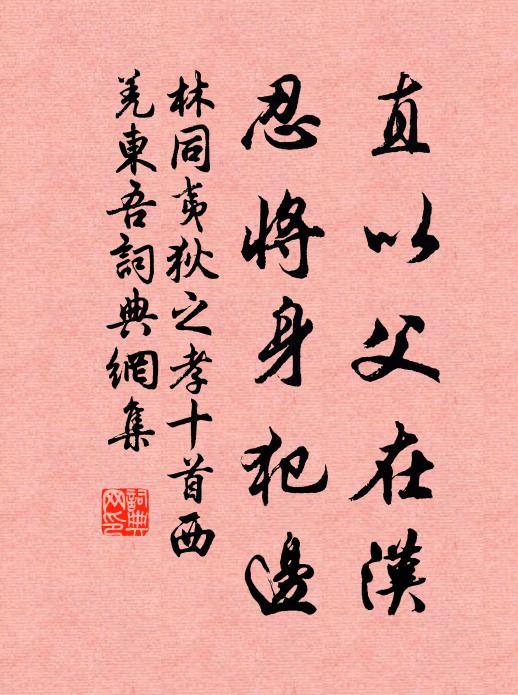 直以父在漢
忍將身犯邊
林同夷狄之孝十首西
羌東吾詞典網集
詞典
网印